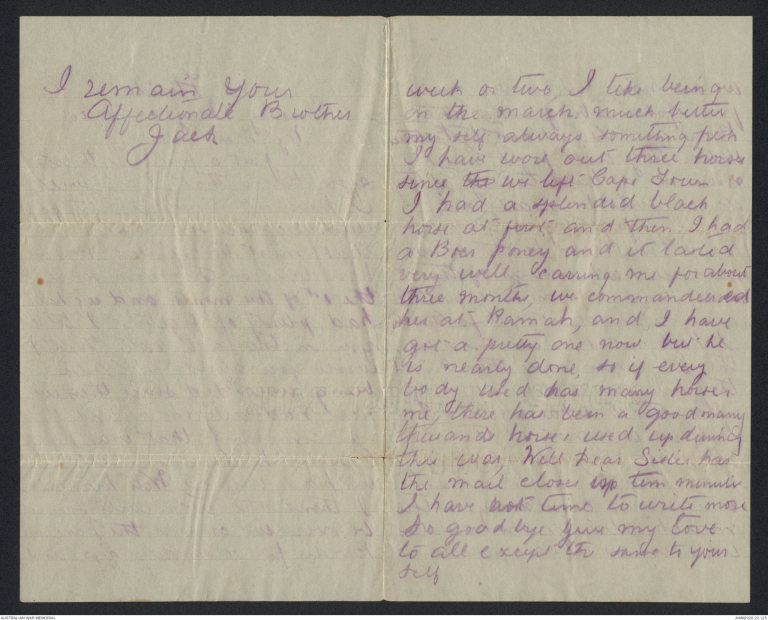 week or two, I like being
on the march much better
my self always something fresh
I have wore out three horses
since the we left Cape Town
I had a splendid black
horse at first and then I had
a Boer poney and it lasted
very well carring me for about
three months, we commandeered
her at Ramah, and I have
got a pretty one now but he
is nearly done, so if every
body used has many horses
me, there has been a good many
thousands horses used up during
this war, Well Dear Sister has
the mail closes in ten minutes
I have not time to write more
So good bye give my love
to all except the same to your
self
I remain Your
Affectionate Brother
Jack
AUSTRALIAN WAR MEMORIAL
AWM2020.22.125